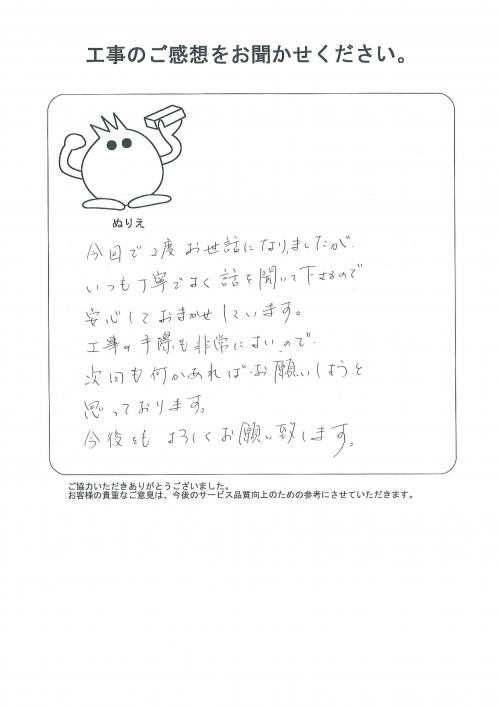 工事のご感想をお聞かせください。
ぬりえ
今回で2度お世話になりましたが、
いつも丁寧でよく話を聞いて下さるので
安心しておまかせしています。
工事の手際も非常によいので、
次回も何かあればお願いしようと
思っております。
今後ともよろしくお願い致します。
ご協力いただきありがとうございました。
お客様の貴重なご意見は、今後のサービス品質向上のための参考にさせていただきます。